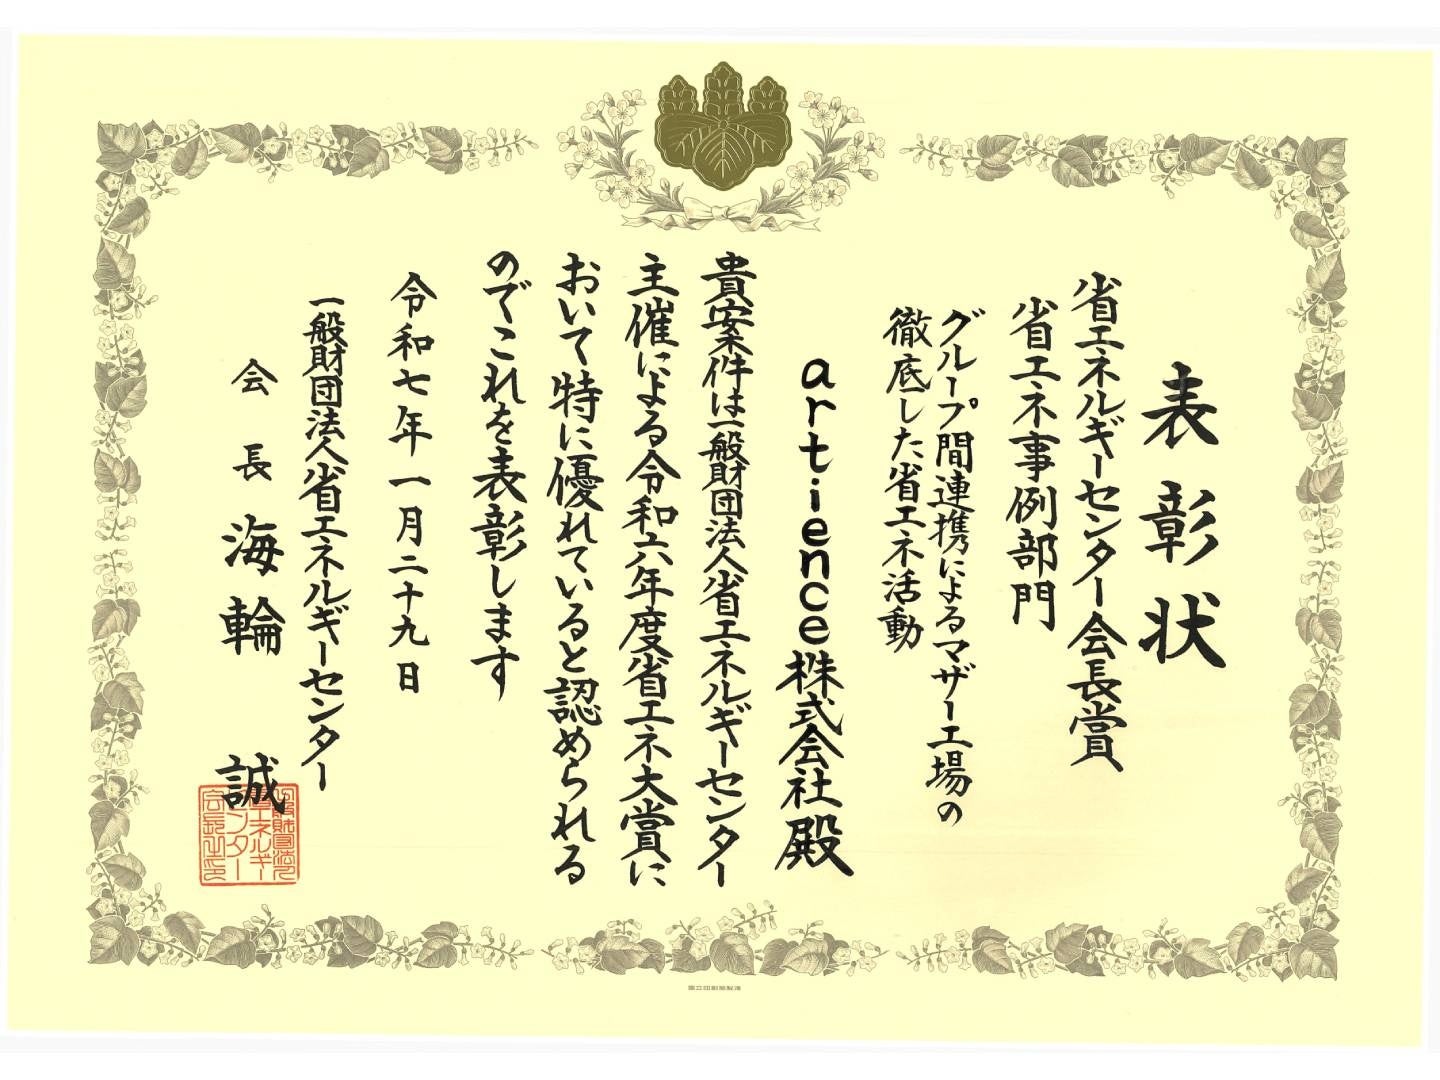 表彰状
省エネルギーセンター会長賞
省エネ事例部門
グループ間連携によるマザー工場の
徹底した省エネ活動
artience株式会社殿
貴案件は一般財団法人省エネルギーセンター
主催による令和六年度省エネ大賞に
おいて特に優れていると認められる
のでこれを表彰します
令和七年一月二十九日
一般財団法人省エネルギーセンター
会長海輪誠